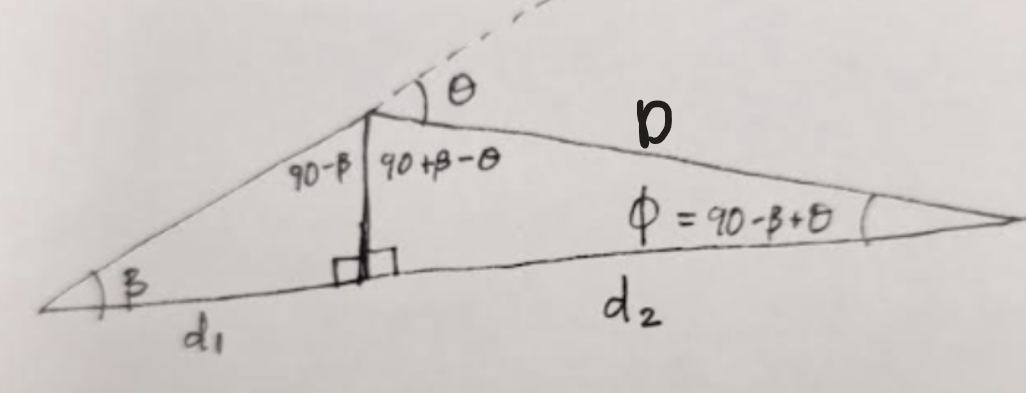 θ
D
90-β
90+β-θ
ϕ = 90-β+θ
β
d₁
d₂